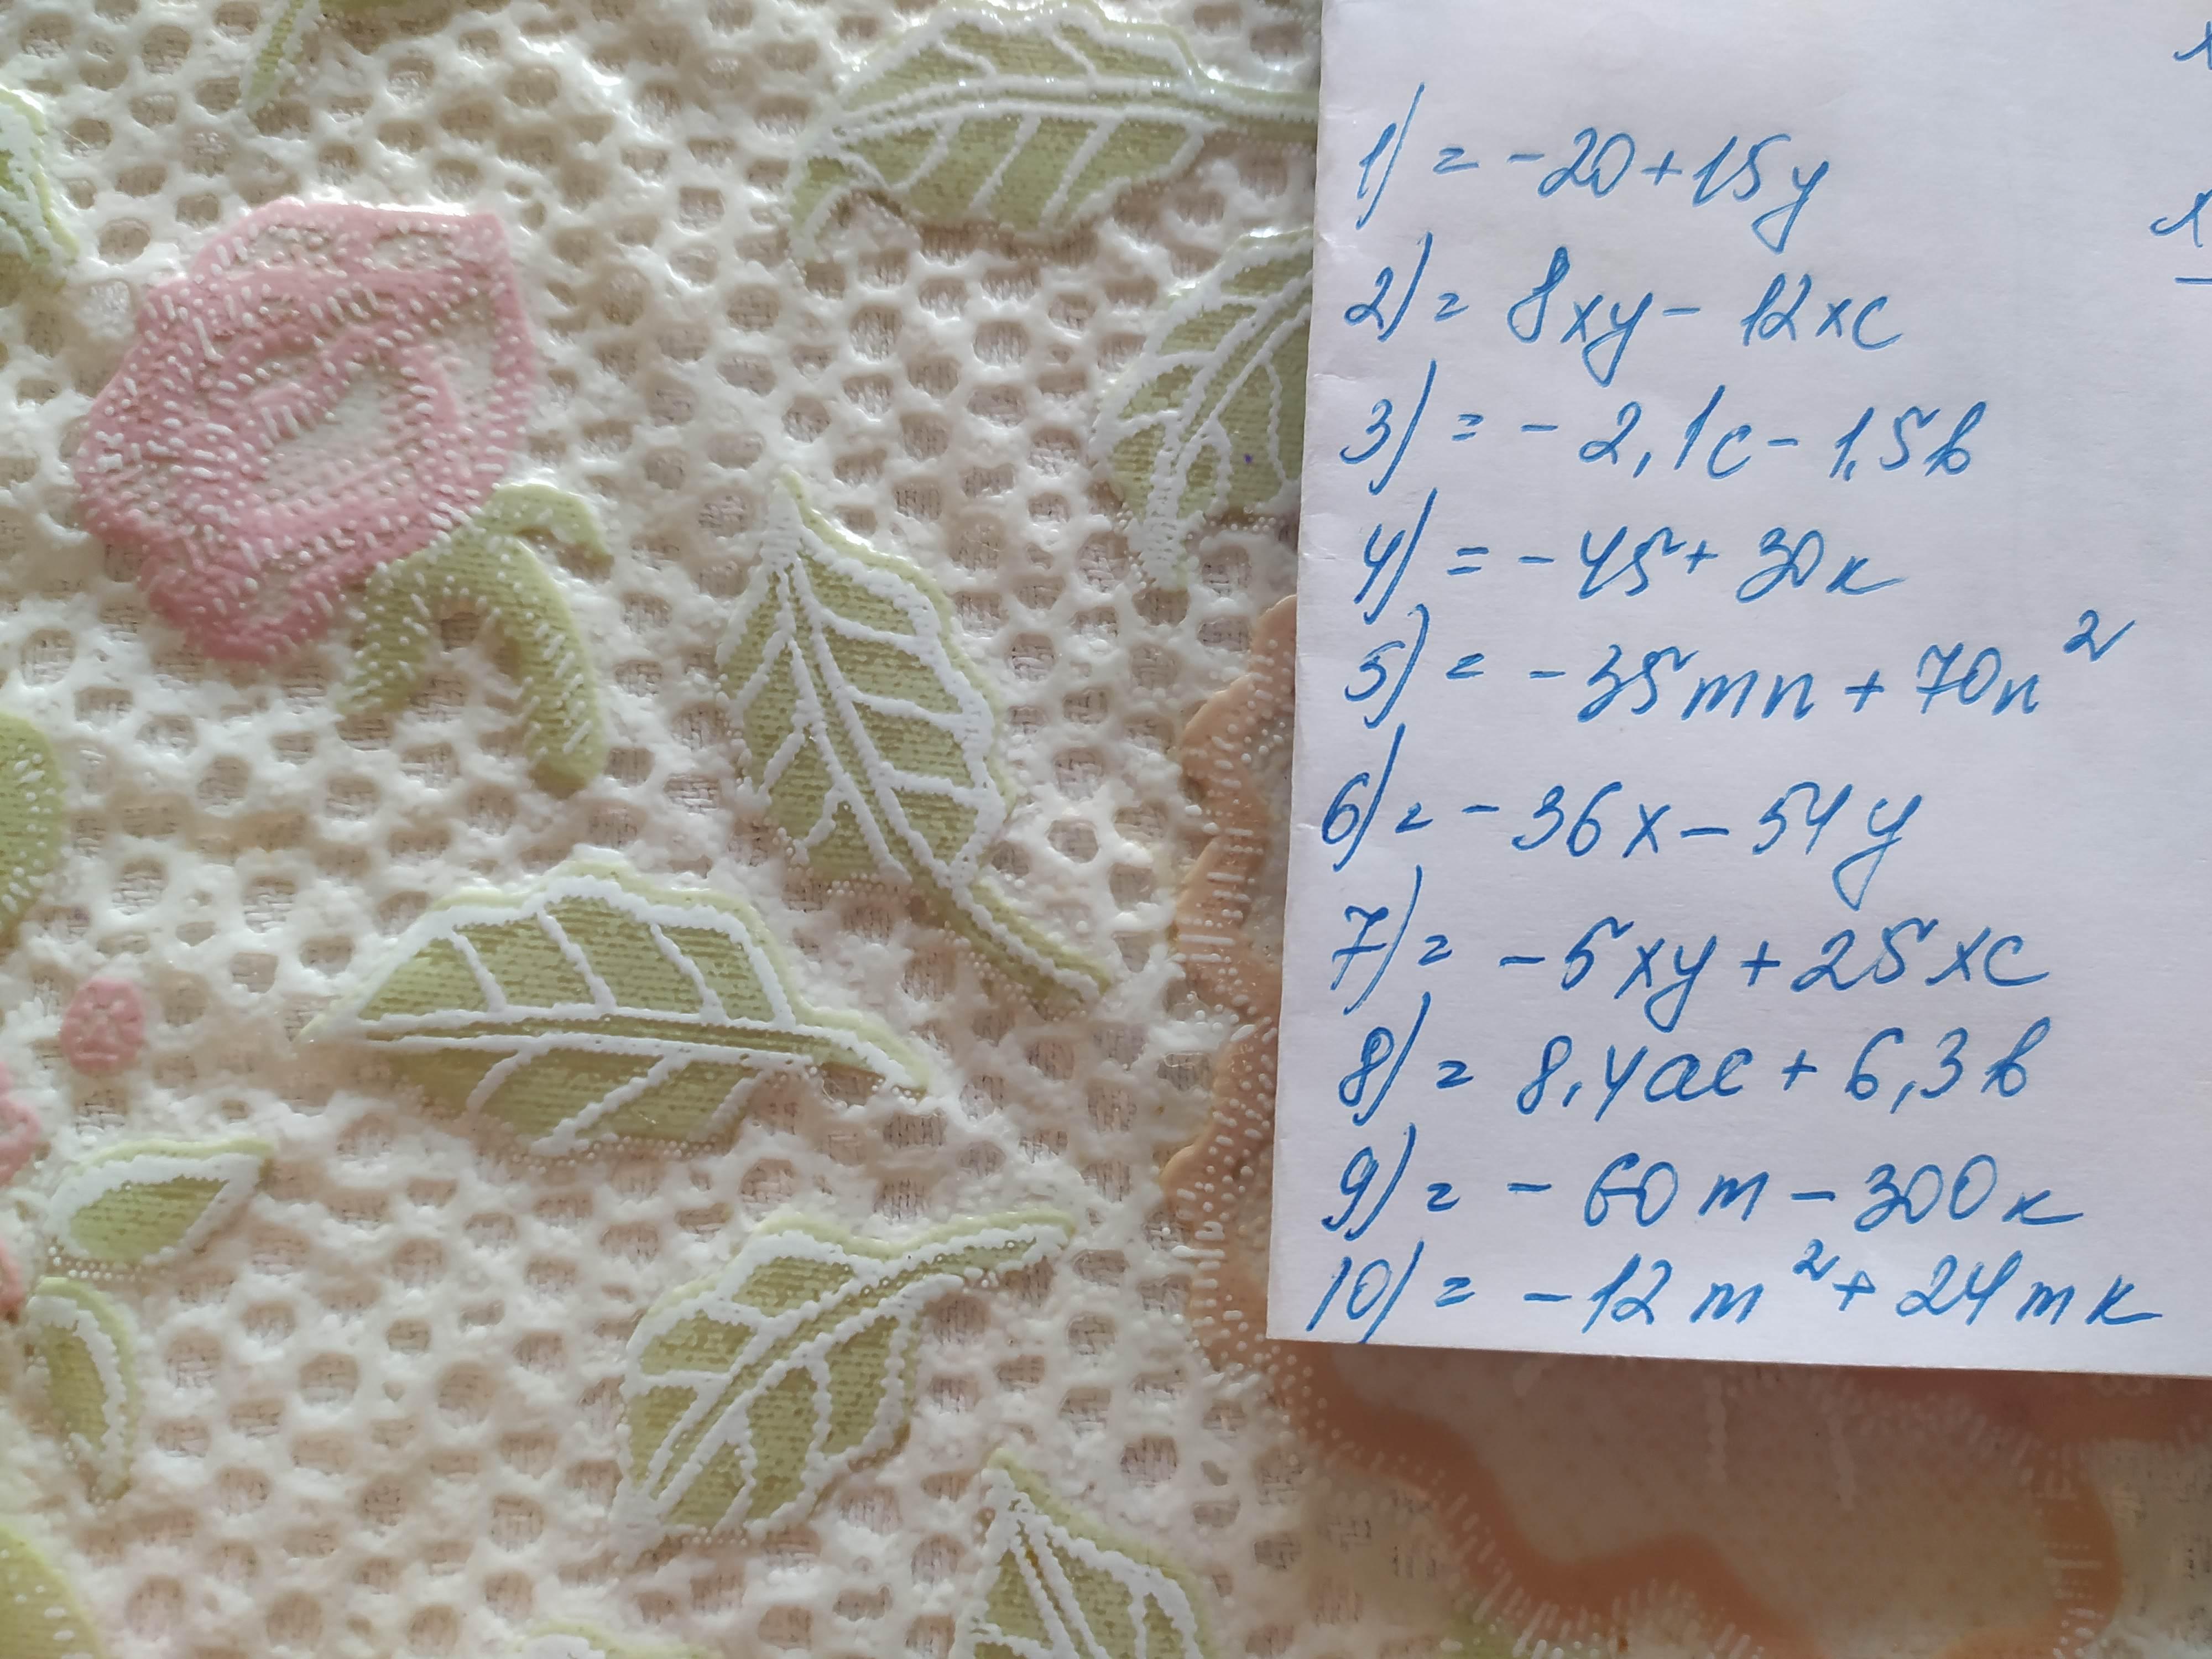 1) = -20+15y
2) = 8xy - 12xc
3) = - 2,1c - 1,5b
4) = - 45 + 30k
5) = - 35mn + 70n²
6) = - 36x - 54y
7) = - 5xy + 25xc
8) = 8,4ac + 6,3b
9) = - 60m - 300k
10) = - 12m² + 24mk